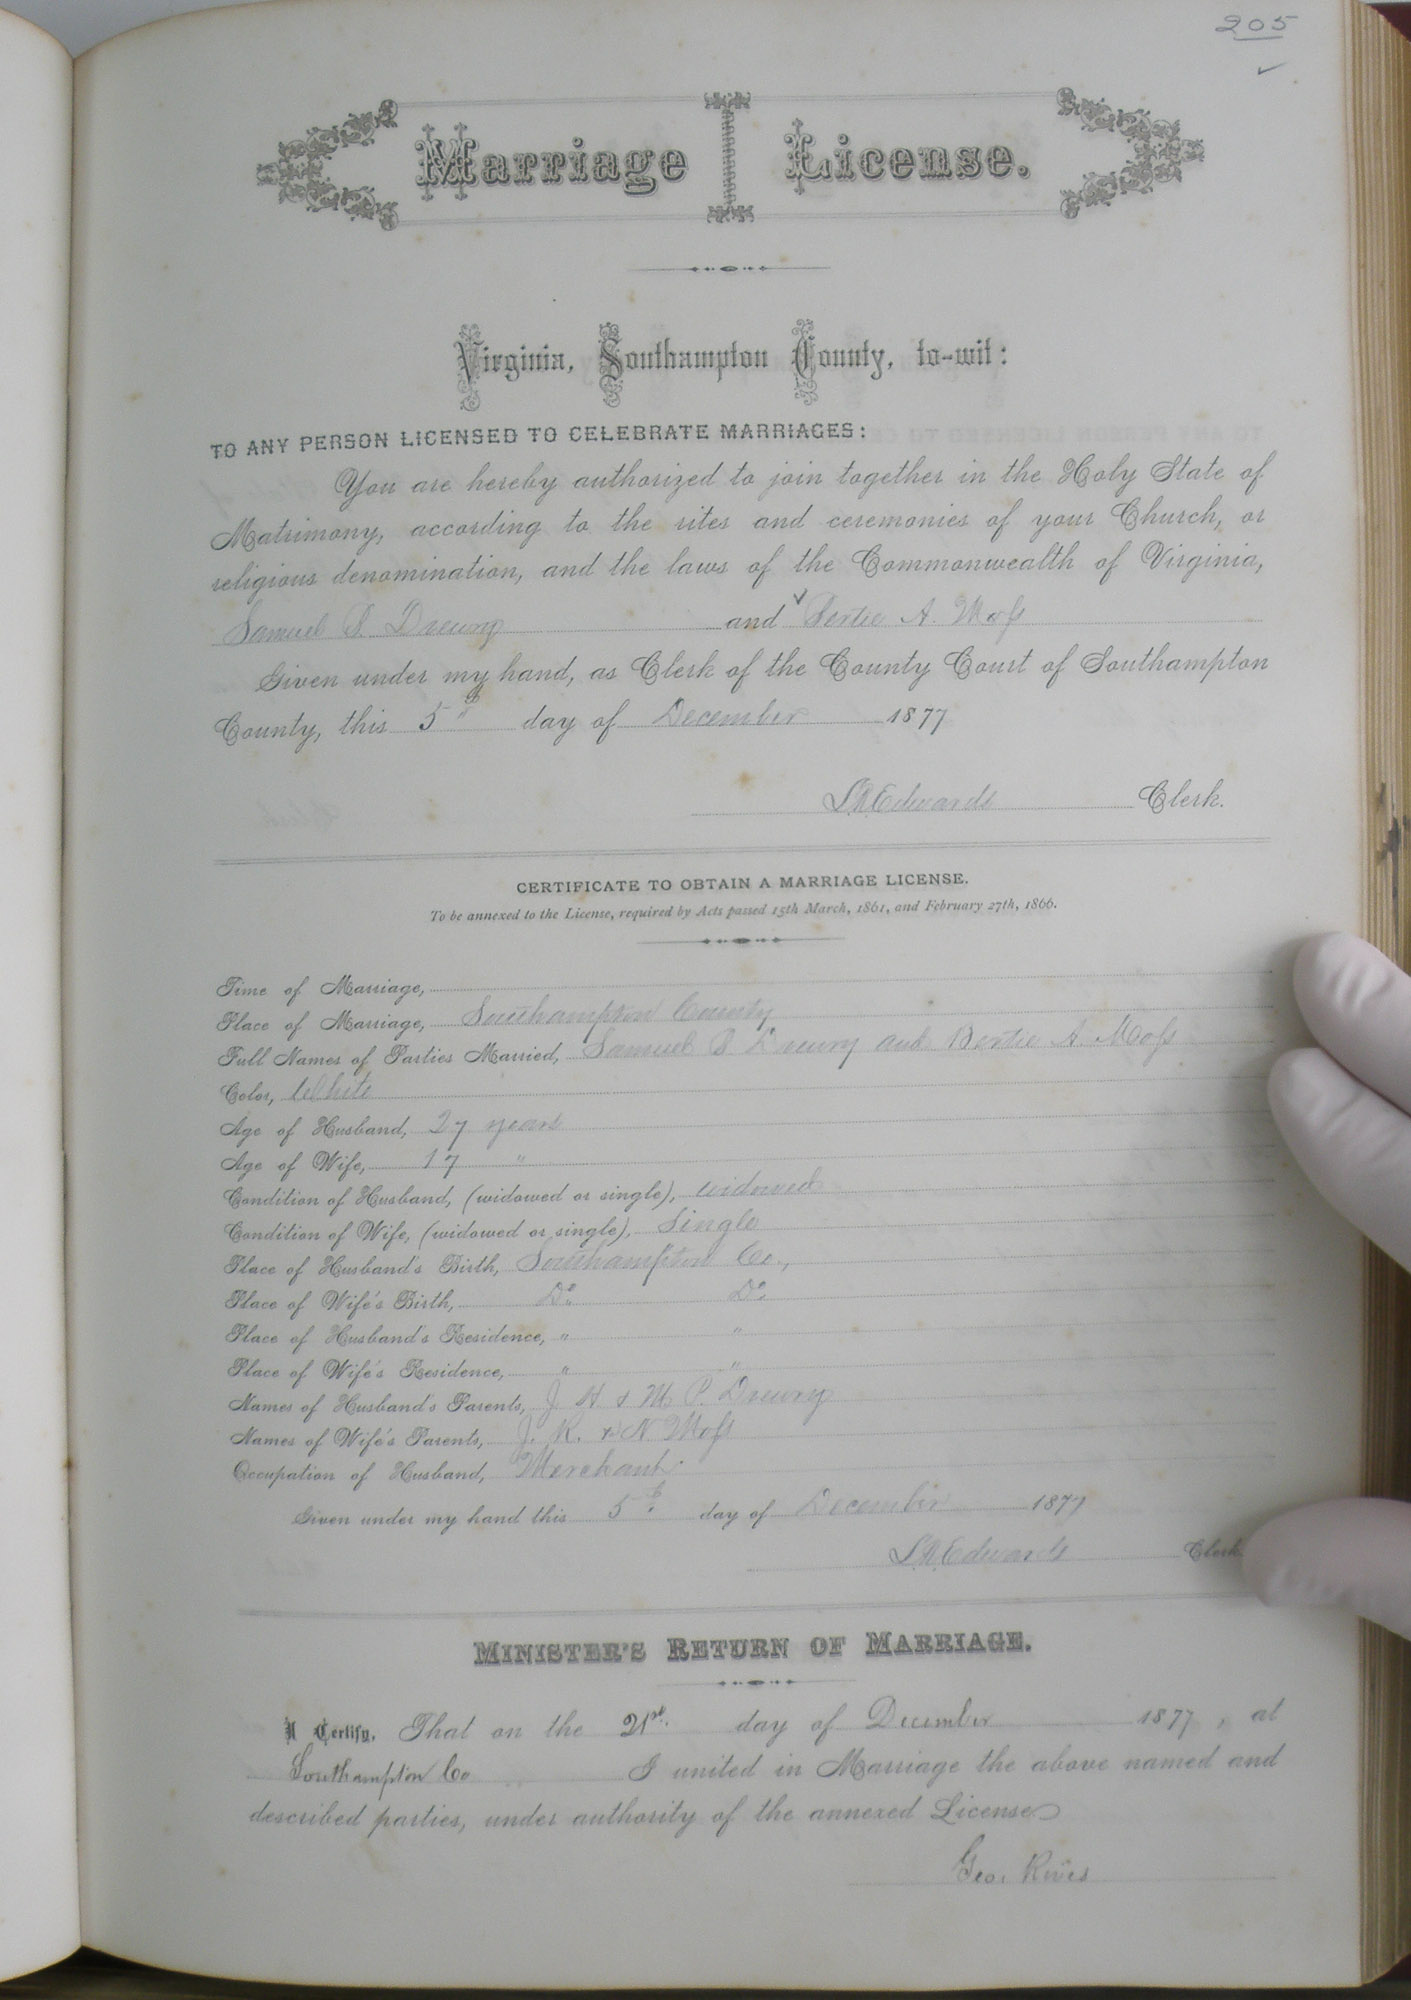 205
Marriage License.
Virginia, Southampton County, to-wit:
TO ANY PERSON LICENSED TO CELEBRATE MARRIAGES:
You are hereby authorized to join together in the Holy State of
Matrimony, according to the rites and ceremonies of your Church, or
religious denomination, and the laws of the Commonwealth of Virginia,
Samuel B. Drewry and Bertie A. Moſs
Given under my hand, as Clerk of the County Court of Southampton
County, this 5th day of December 1877
L.R. Edwards Clerk.
CERTIFICATE TO OBTAIN A MARRIAGE LICENSE.
To be annexed to the License, required by Acts passed 15th March, 1861, and February 27th, 1866.
Time of Marriage,
Place of Marriage, Southampton County
Full Names of Parties Married, Samuel B Drewry and Bertie A. Moſs
Color, White
Age of Husband, 27 years
Age of Wife, 17 "
Condition of Husband, (widowed or single), widowed
Condition of Wife, (widowed or single), Single
Place of Husband's Birth, Southampton Co.,
Place of Wife's Birth, Do. Do.
Place of Husband's Residence, " "
Place of Wife's Residence, " "
Names of Husband's Parents, J H & M. P. Drewry
Names of Wife's Parents, J. R. & N Moſs
Occupation of Husband, Merchant.
Given under my hand this 5th day of December 1877
L.R. Edwards Clerk
MINISTER'S RETURN OF MARRIAGE.
I Certify, That on the 21st. day of December 1877, at
Southampton Co I united in Marriage the above named and
described parties, under authority of the annexed License
Geo. Rives